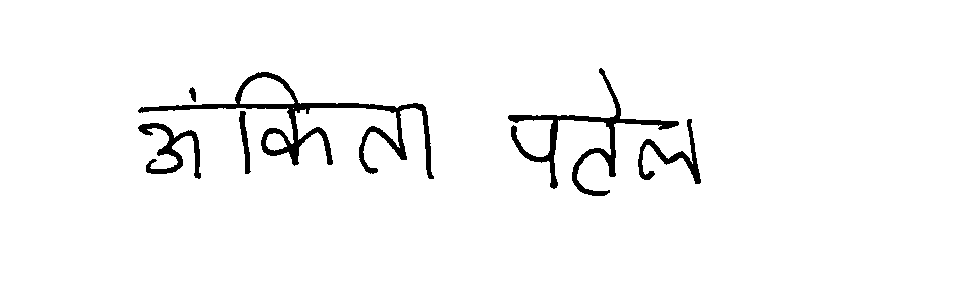 अंकिता पतेल